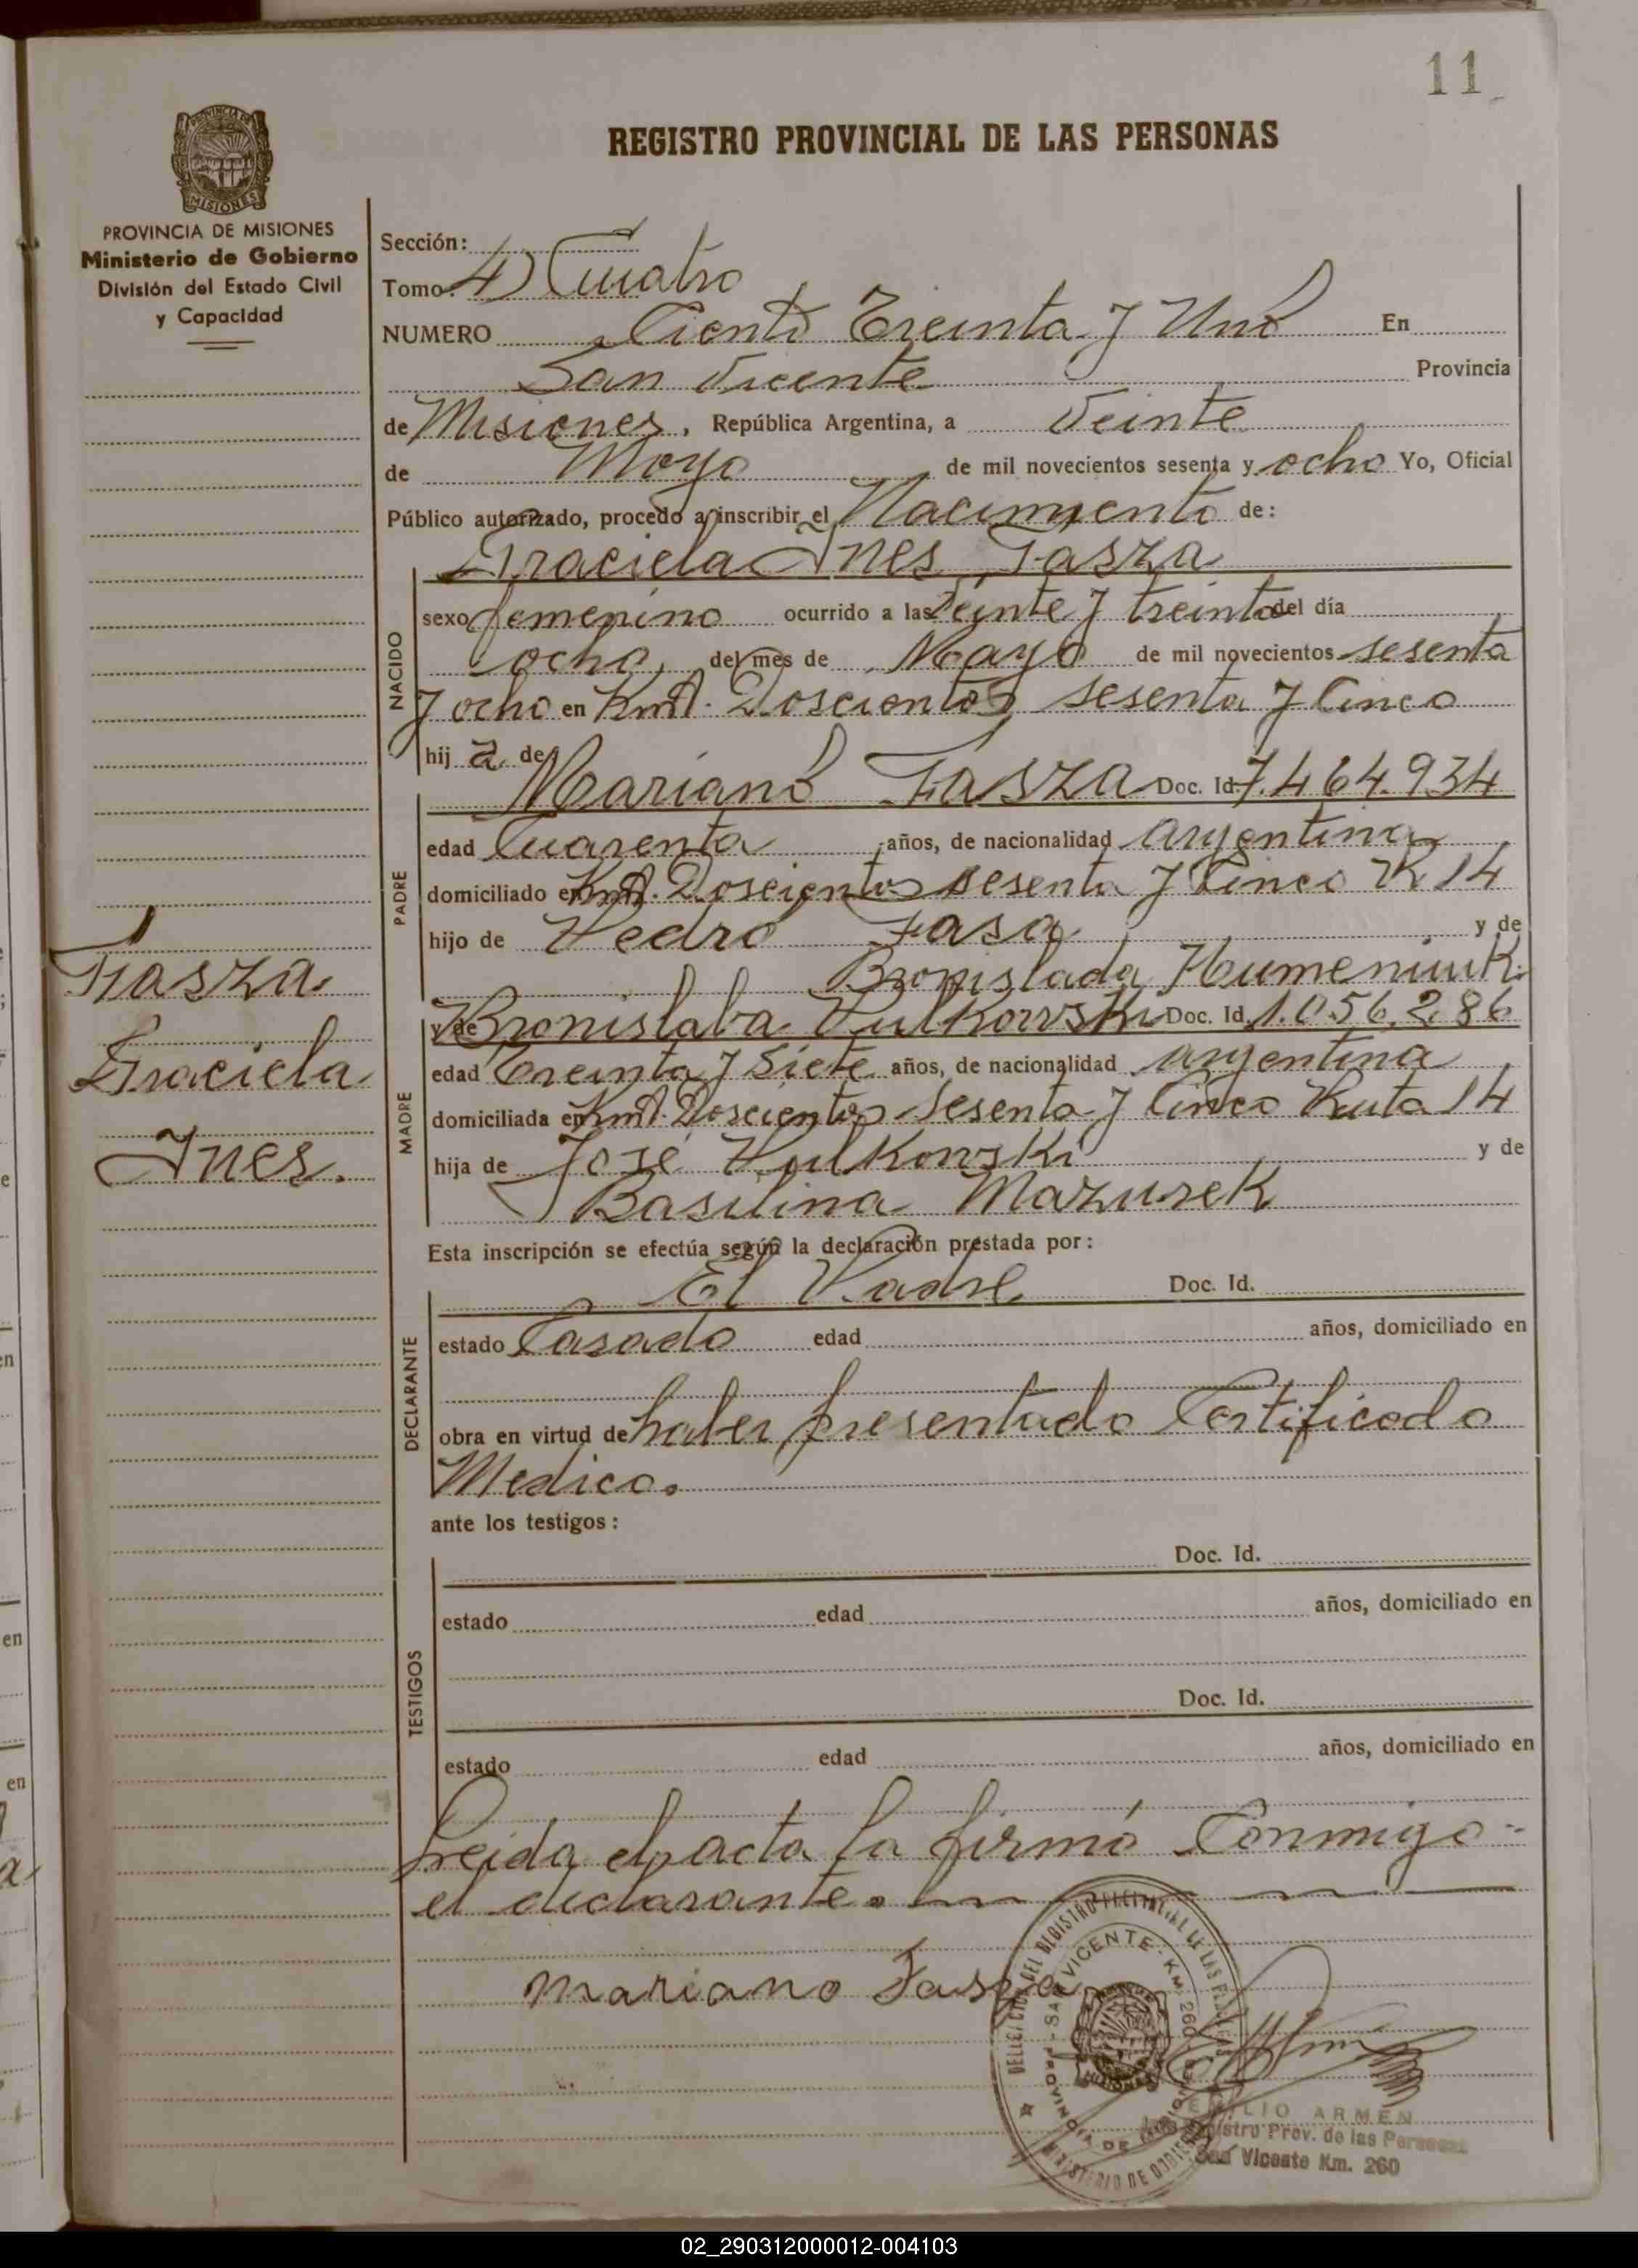 11
REGISTRO PROVINCIAL DE LAS PERSONAS
PROVINCIA DE MISIONES
Ministerio de Gobierno
División del Estado Civil
y Capacidad
Sección:
Tomo: 4) Cuatro
NUMERO Ciento Treinta y Uno En
San Vicente Provincia
de Misiones, República Argentina, a Veinte
de Mayo de mil novecientos sesenta y ocho Yo, Oficial
Público autorizado, procedo a inscribir el Nacimiento de:
Graciela Ines Fasza
NACIDO
sexo femenino ocurrido a las Veinte y treinta del día
ocho, del mes de Mayo de mil novecientos sesenta
y ocho en Kmt. Doscientos sesenta y Cinco
hij a de
Mariano Fasza Doc. Id. 7.464.934
PADRE
edad Cuarenta años, de nacionalidad argentina
domiciliado en Kmt. Doscientos sesenta y Cinco R 14
hijo de Pedro Fasa y de
Bronislada Humeniuk.
y de Bronislava Kulkowski Doc. Id. 1.056.286
MADRE
edad Treinta y Siete años, de nacionalidad argentina
domiciliada en Kmt. Doscientos Sesenta y Cinco Ruta 14
hija de José Kulkowski y de
Basilina Mazurek
Fasza
Graciela
Ines.
Esta inscripción se efectúa según la declaración prestada por:
El Padre Doc. Id.
DECLARANTE
estado Casado edad años, domiciliado en
obra en virtud de haber presentado Certificado
Medico.
ante los testigos:
Doc. Id.
TESTIGOS
estado edad años, domiciliado en
Doc. Id.
estado edad años, domiciliado en
Leida el acta la firmó Conmigo -
el declarante.
mariano Fasza
SAN VICENTE KM. 260
PROVINCIA DE MISIONES
MINISTERIO DE GOBIERNO
EMILIO ARMEN
Registro Prov. de las Personas
San Vicente Km. 260
02_290312000012-004103